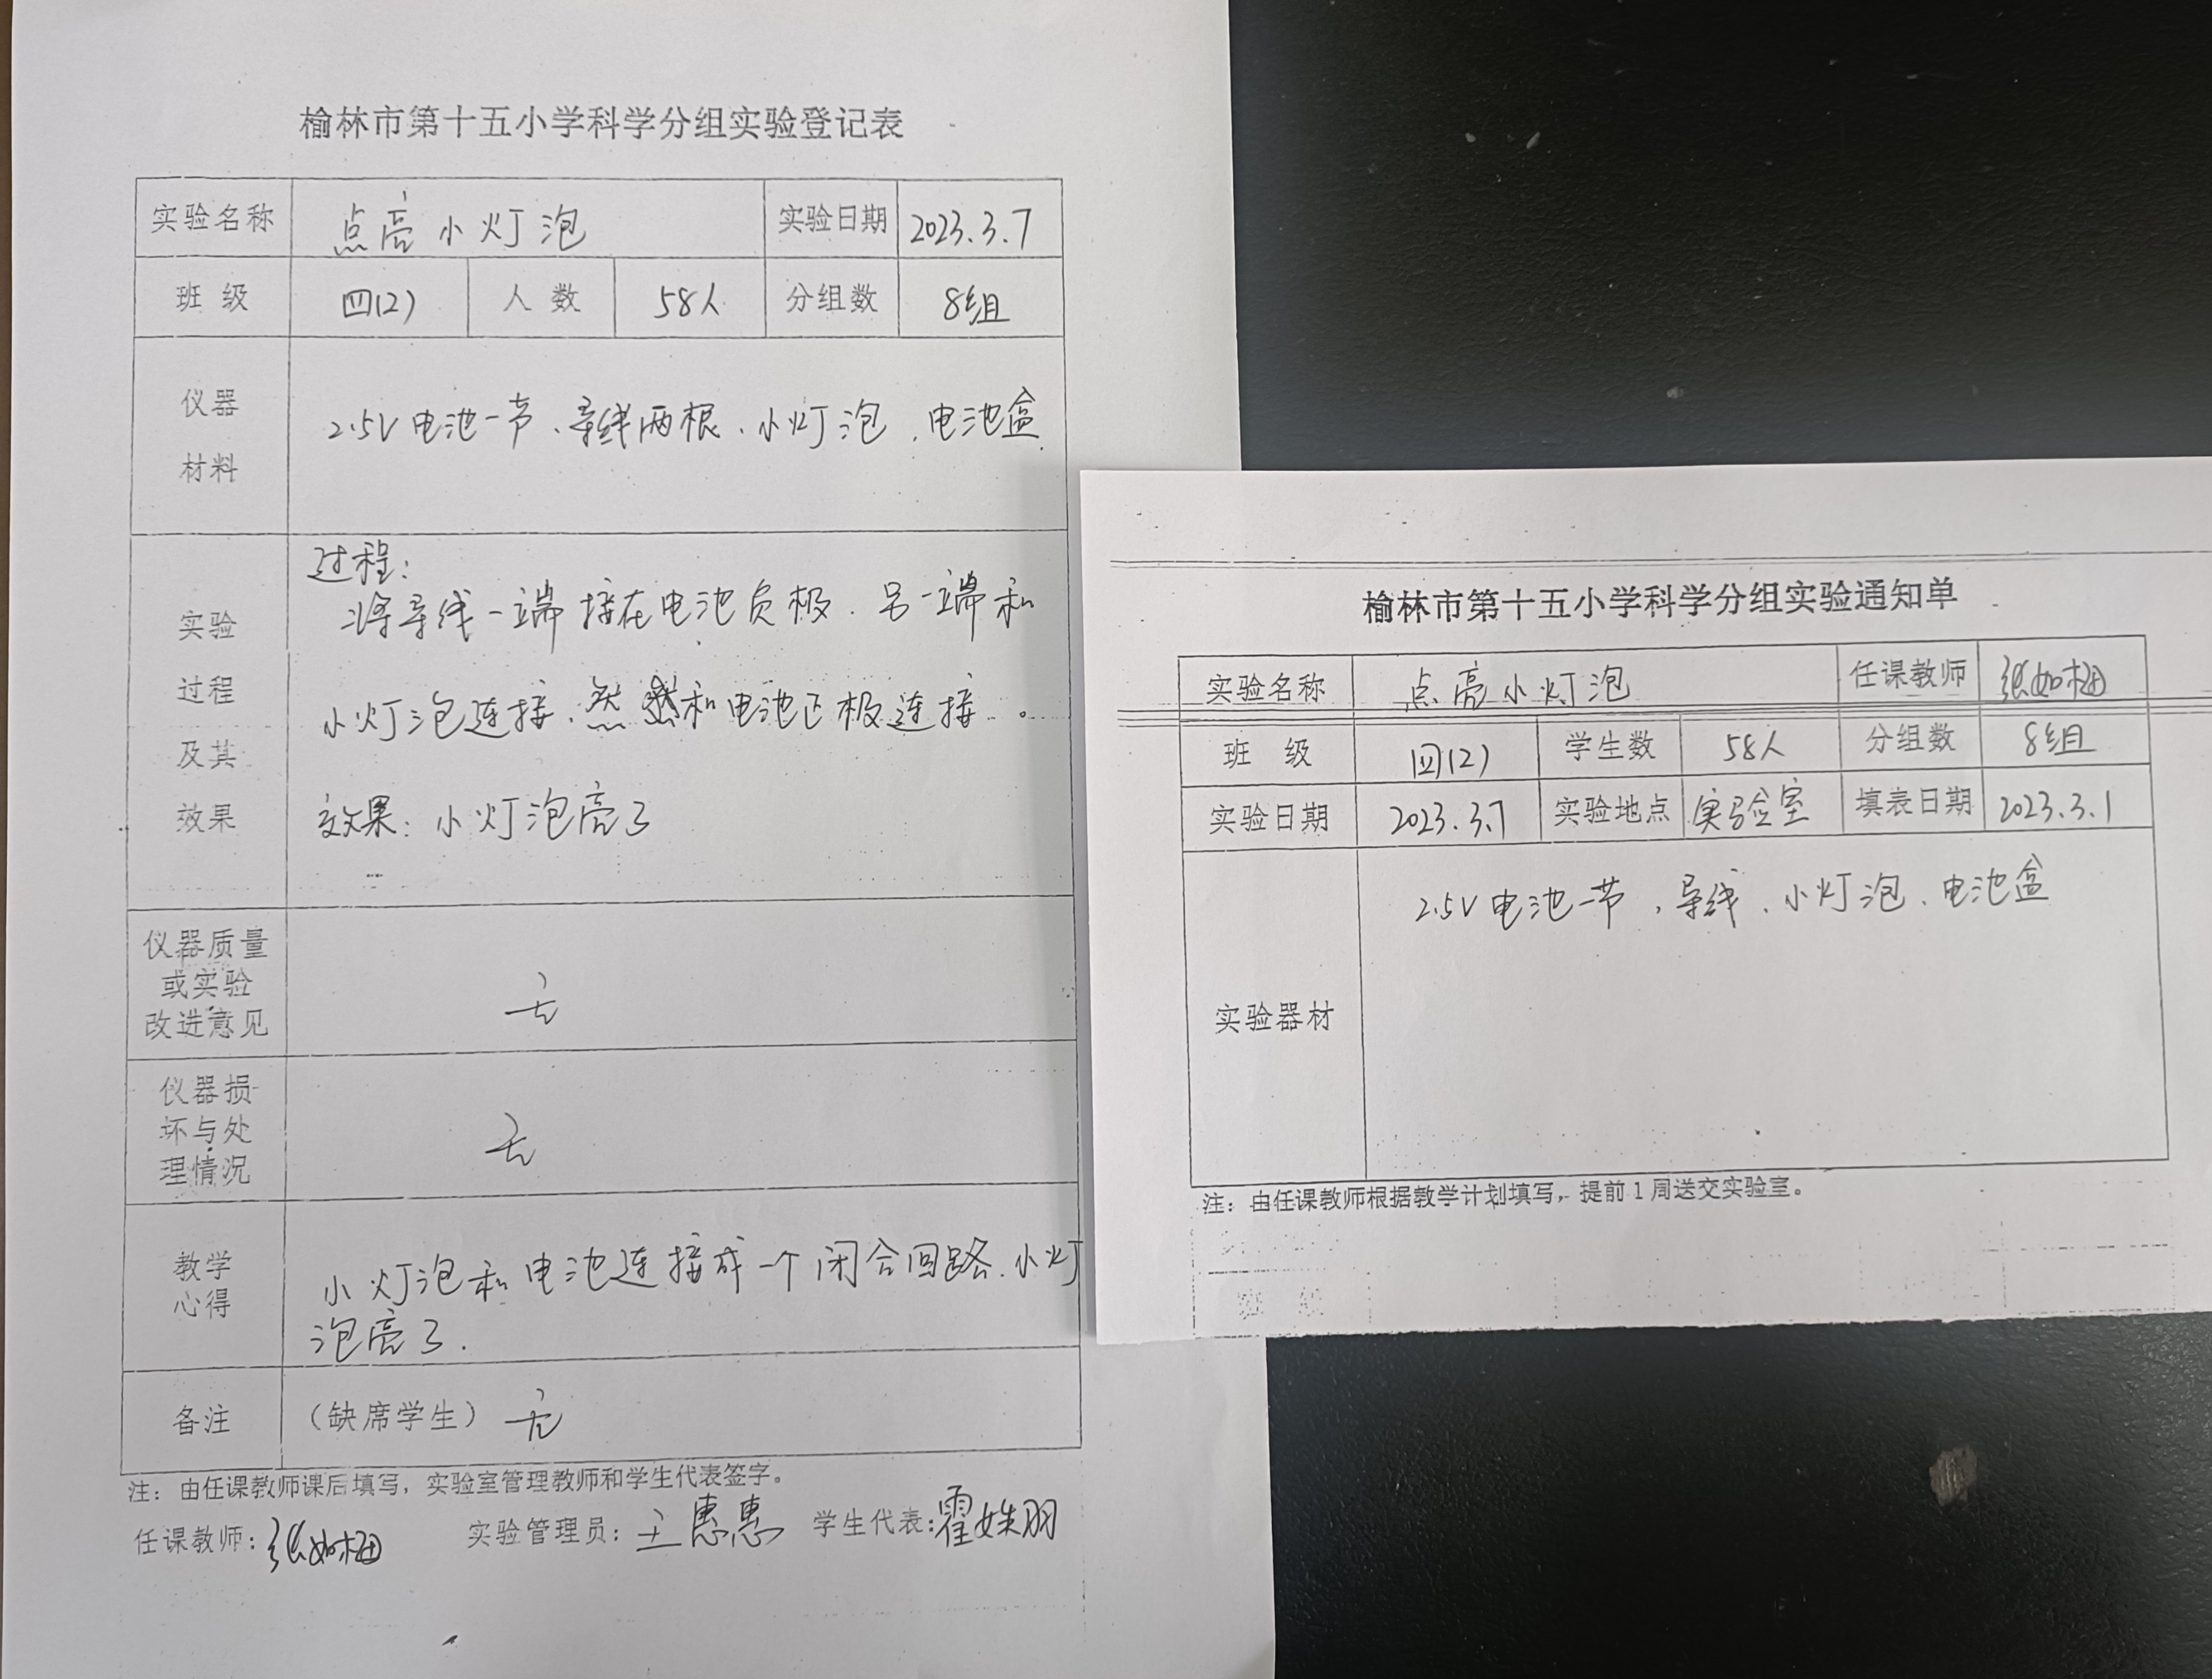 榆林市第十五小学科学分组实验登记表
实验名称 点亮小灯泡 实验日期 2023.3.7
班级 四(2) 人数 58人 分组数 8组
仪器
材料
2.5V电池一节、导线两根、小灯泡、电池盒
实验
过程
及其
效果
过程:
将导线一端接在电池负极、另一端和
小灯泡连接、然 和电池正极连接。
效果:小灯泡亮了
仪器质量
或实验
改进意见
无
仪器损
坏与处
理情况
无
教学
心得
小灯泡和电池连接成一个闭合回路、小灯
泡亮了.
备注 (缺席学生) 无
注:由任课教师课后填写,实验室管理教师和学生代表签字。
任课教师:张如梅 实验管理员:王惠惠 学生代表:霍姝羽
榆林市第十五小学科学分组实验通知单
实验名称 点亮小灯泡 任课教师 张如梅
班级 四(2) 学生数 58人 分组数 8组
实验日期 2023.3.7 实验地点 实验室 填表日期 2023.3.1
实验器材
2.5V电池一节,导线、小灯泡、电池盒
注:由任课教师根据教学计划填写,提前1周送交实验室。